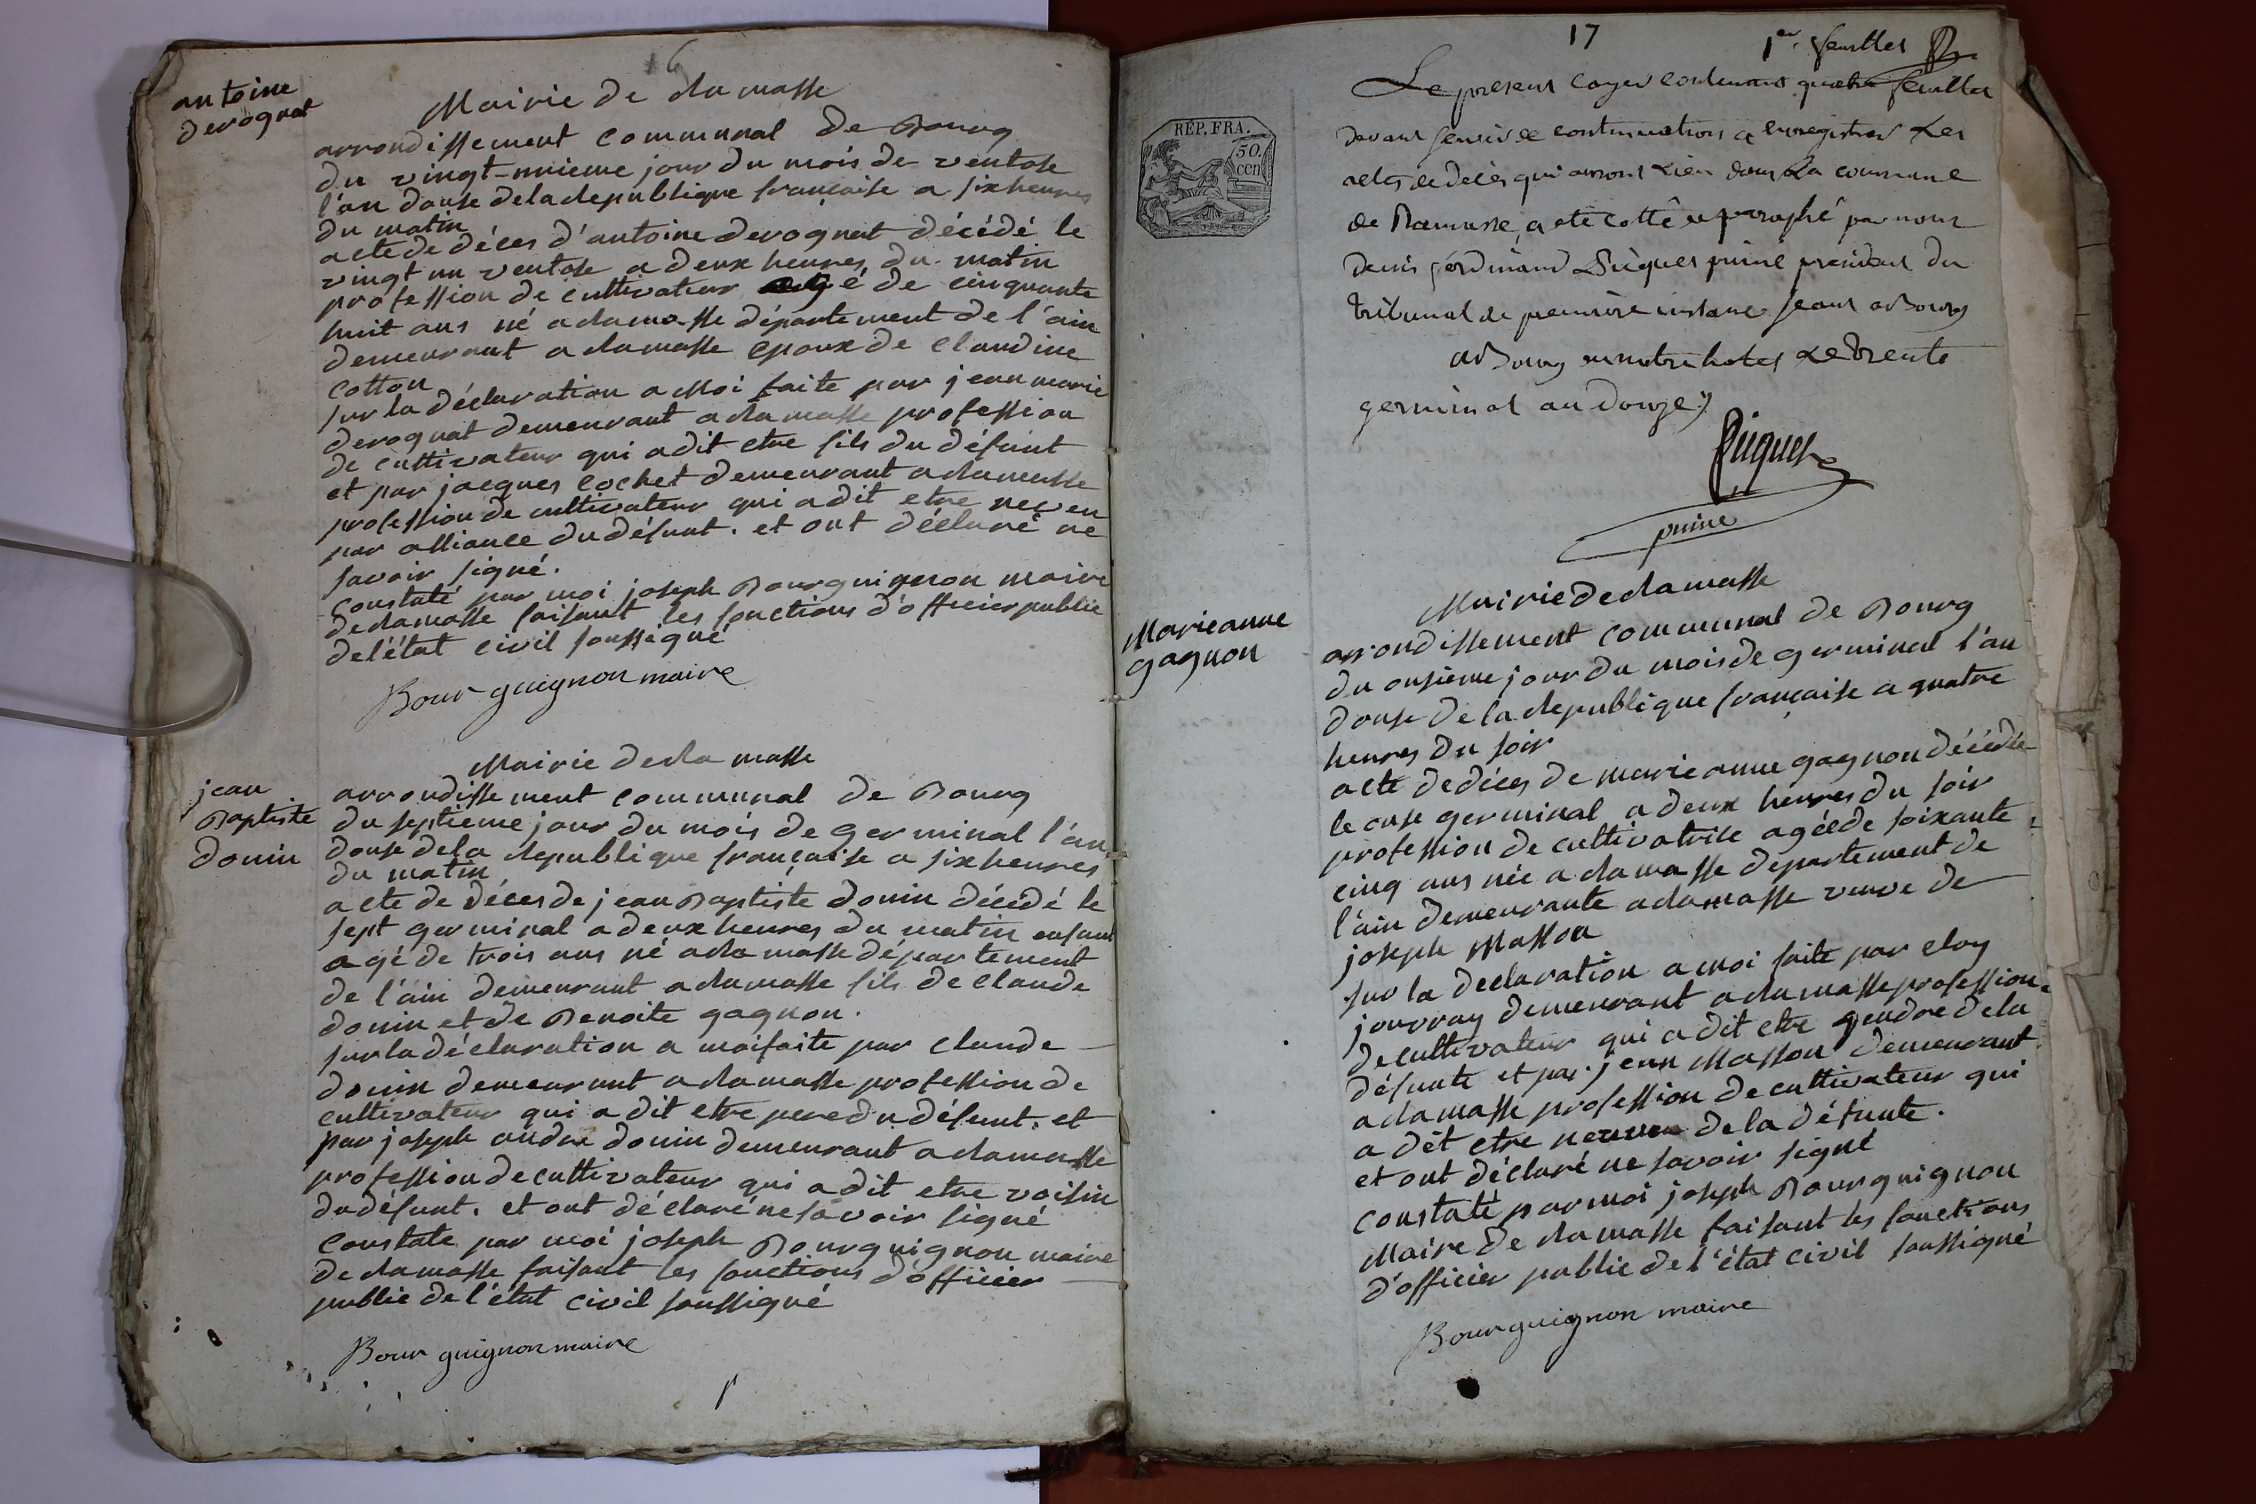 16
antoine
derognat
Mairie de ramasse
arrondissement communal de Bourg
du vingt-unieme jour du mois de ventose
l'an douse de la republique française a six heures
du matin
acte de déces d'antoine derognat décédé le
vingt un ventose a deux heures du matin
profession de cultivateur agé de cinquante
huit ans né a ramasse département de l'ain
demeurant a ramasse epoux de claudine
cotton
sur la déclaration a Moi faite par jean marie
derognat demeurant a ramasse profession
de cultivateur qui a dit etre fils du défunt
et par jacques cochet demeurant a ramasse
profession de cultivateur qui a dit etre neveu
par alliance du défunt. et ont déclaré ne
savoir signé.
constaté par moi joseph Bourguignon maire
de ramasse faisant les fonctions d'officier public
de l'état civil soussigné
Bourguignon maire
jean
Baptiste
donin
Mairie de ramasse
arrondissement communal de Bourg
du septieme jour du mois de germinal l'an
douse de la republique française a six heures
du matin
acte de déces de jean Baptiste donin décédé le
sept germinal a deux heures du matin enfant
agé de trois ans né a ramasse département
de l'ain demeurant a ramasse fils de claude
donin et de Benoite gagnon.
sur la déclaration a moi faite par claude
donin demeurant a ramasse profession de
cultivateur qui a dit etre pere du défunt. et
par joseph andré donin demeurant a ramasse
profession de cultivateur qui a dit etre voisin
du défunt. et ont déclaré ne savoir signé
constate par moi joseph Bourguignon maire
de ramasse faisant les fonctions d'officier
public de l'état civil soussigné
Bourguignon maire
17
1er feuillet
Le present cayer contenant quatre feuillets
devant servir de continuation a enregistrer Les
actes de décès qui auront Lieu dans La commune
de Ramasse, a eté cotté et paraphé par nous
denis ferdinand Piquet puiné president du
tribunal de première instance seant a Bourg
a Bourg en notre hotel Le trente
germinal an douze
Piquet
puiné
RÉP. FRA.
50.
cen
Marieanne
gagnon
Mairie de ramasse
arrondissement communal de Bourg
du onsième jour du mois de germinal l'an
douse de la republique française a quatre
heures du soir
acte de déces de marieanne gagnon décédée
le onse germinal a deux heures du soir
profession de cultivatrise agée de soixante
cinq ans née a ramasse departement de
l'ain demeurante a ramasse veuve de
joseph Masson
sur la declaration a moi faite par eloy
jouvray demeurant a ramasse profession
de cultivateur qui a dit etre gendre de la
défunte et par jean Masson demeurant
a ramasse profession de cultivateur qui
a dit etre neuveu de la défunte.
et ont déclaré ne savoir signé
constaté par moi joseph Bourguignon
Maire de ramasse faisant les fonctions
d'officier public de l'état civil soussigné
Bourguignon maire